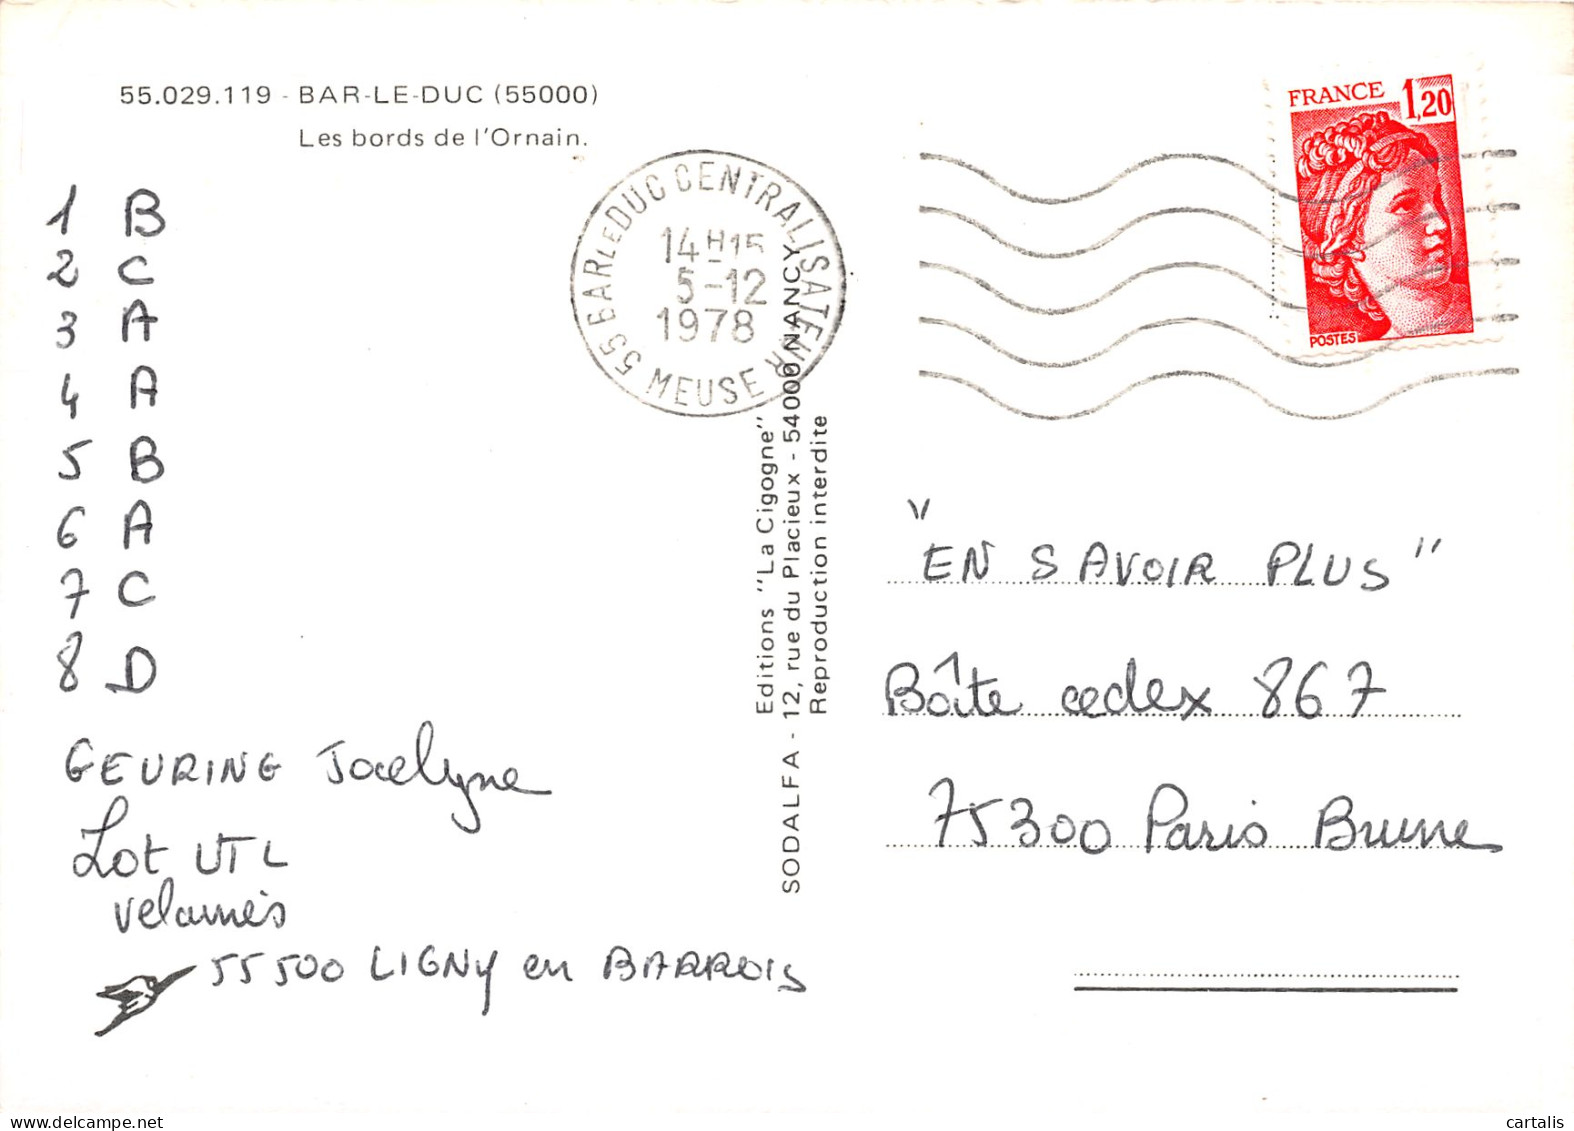 55.029.119 - BAR-LE-DUC (55000)
Les bords de l'Ornain.
1 B
2 C
3 A
4 A
5 B
6 A
7 C
8 D
GEURING Jocelyne
Lot UTL
Velaines
55500 LIGNY en BARROIS
55 BAR LE DUC CENTRALISATEUR
14H15
5-12
1978
MEUSE
Editions "La Cigogne"
SODALFA - 12, rue du Placieux - 54000 NANCY
Reproduction interdite
FRANCE 1,20
POSTES
"EN SAVOIR PLUS"
Boîte cedex 867
75300 Paris Brune
cartalis